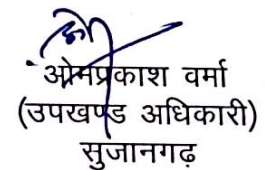 ओमप्रकाश वर्मा
(उपखण्ड अधिकारी)
सुजानगढ़